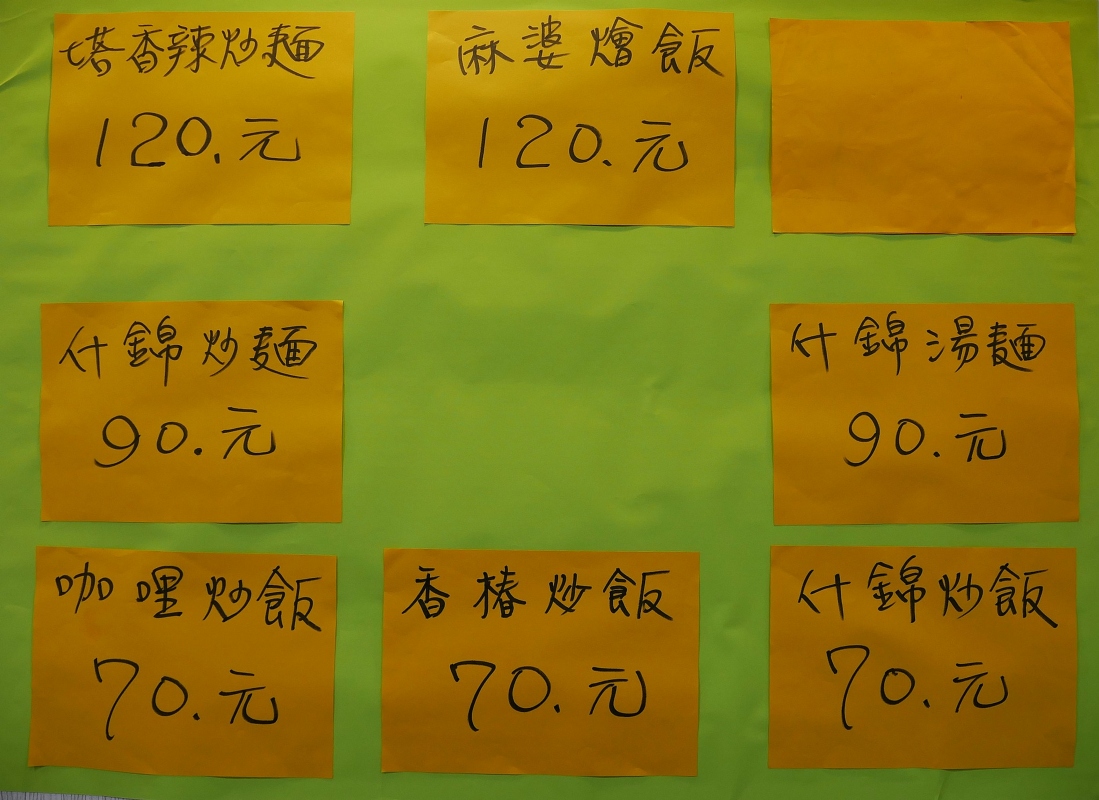 塔香辣炒麵
120.元
麻婆燴飯
120.元
什錦炒麵
90.元
什錦湯麵
90.元
咖哩炒飯
70.元
香椿炒飯
70.元
什錦炒飯
70.元